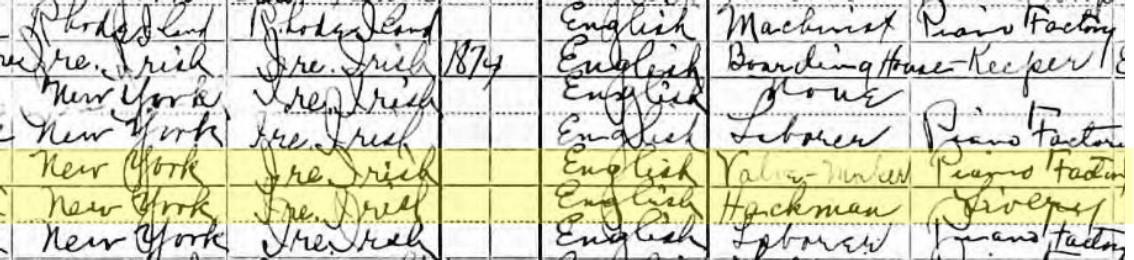 Rhode Island Rhode Island English Machinist Piano Factory
Ire. Irish Ire. Irish 1874 English Boarding House-Keeper
New York Ire. Irish English None
New York Ire. Irish English Laborer Piano Factory
New York Ire. Irish English Valve-Maker Piano Factory
New York Ire. Irish English Hackman Livery
New York Ire. Irish English Laborer Piano Factory